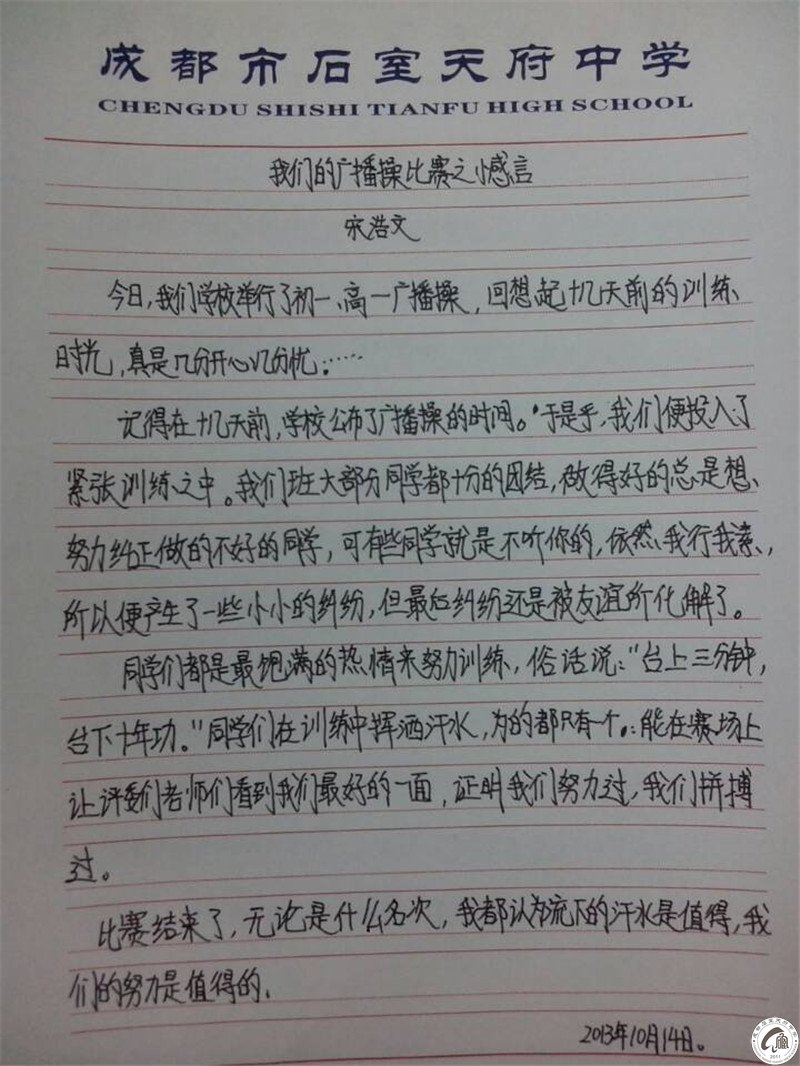 成都市石室天府中学
CHENGDU SHISHI TIANFU HIGH SCHOOL
我们的广播操比赛之感言
宋浩文
今日，我们学校举行了初一、高一广播操，回想起十几天前的训练
时光，真是几分开心几分忧……
记得在十几天前，学校公布了广播操的时间。于是乎，我们便投入了
紧张训练之中。我们班大部分同学都十分的团结，做得好的总是想、
努力纠正做的不好的同学，可有些同学就是不听你的，依然我行我素，
所以便产生了一些小小的纠纷，但最后纠纷还是被友谊所化解了。
同学们都是最饱满的热情来努力训练，俗话说：“台上三分钟，
台下十年功。”同学们在训练中挥洒汗水，为的都只有一个：能在赛场上
让评委们老师们看到我们最好的一面，证明我们努力过，我们拼搏
过。
比赛结束了，无论是什么名次，我都认为流下的汗水是值得，我
们的努力是值得的、
2013年10月14日。
2011